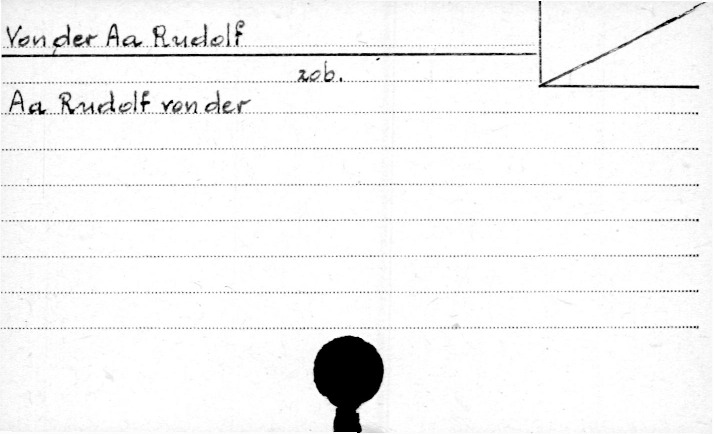 Von der Aa Rudolf
zob.
Aa Rudolf von der